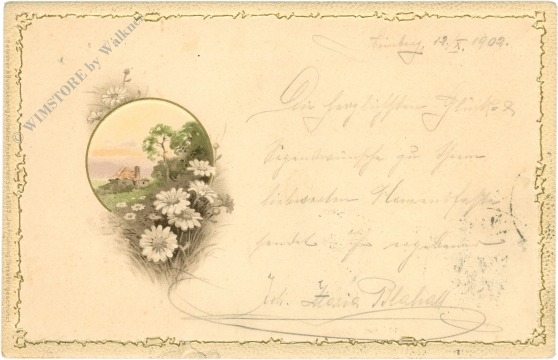 © WIMSTORE by Walkne
12./X. 1902.
Die herzlichsten Glück- &
Segenswünsche zu Ihrem
liebwerten Namensfeste
sendet Ihr ergebener
Joh. Maria Blahatl